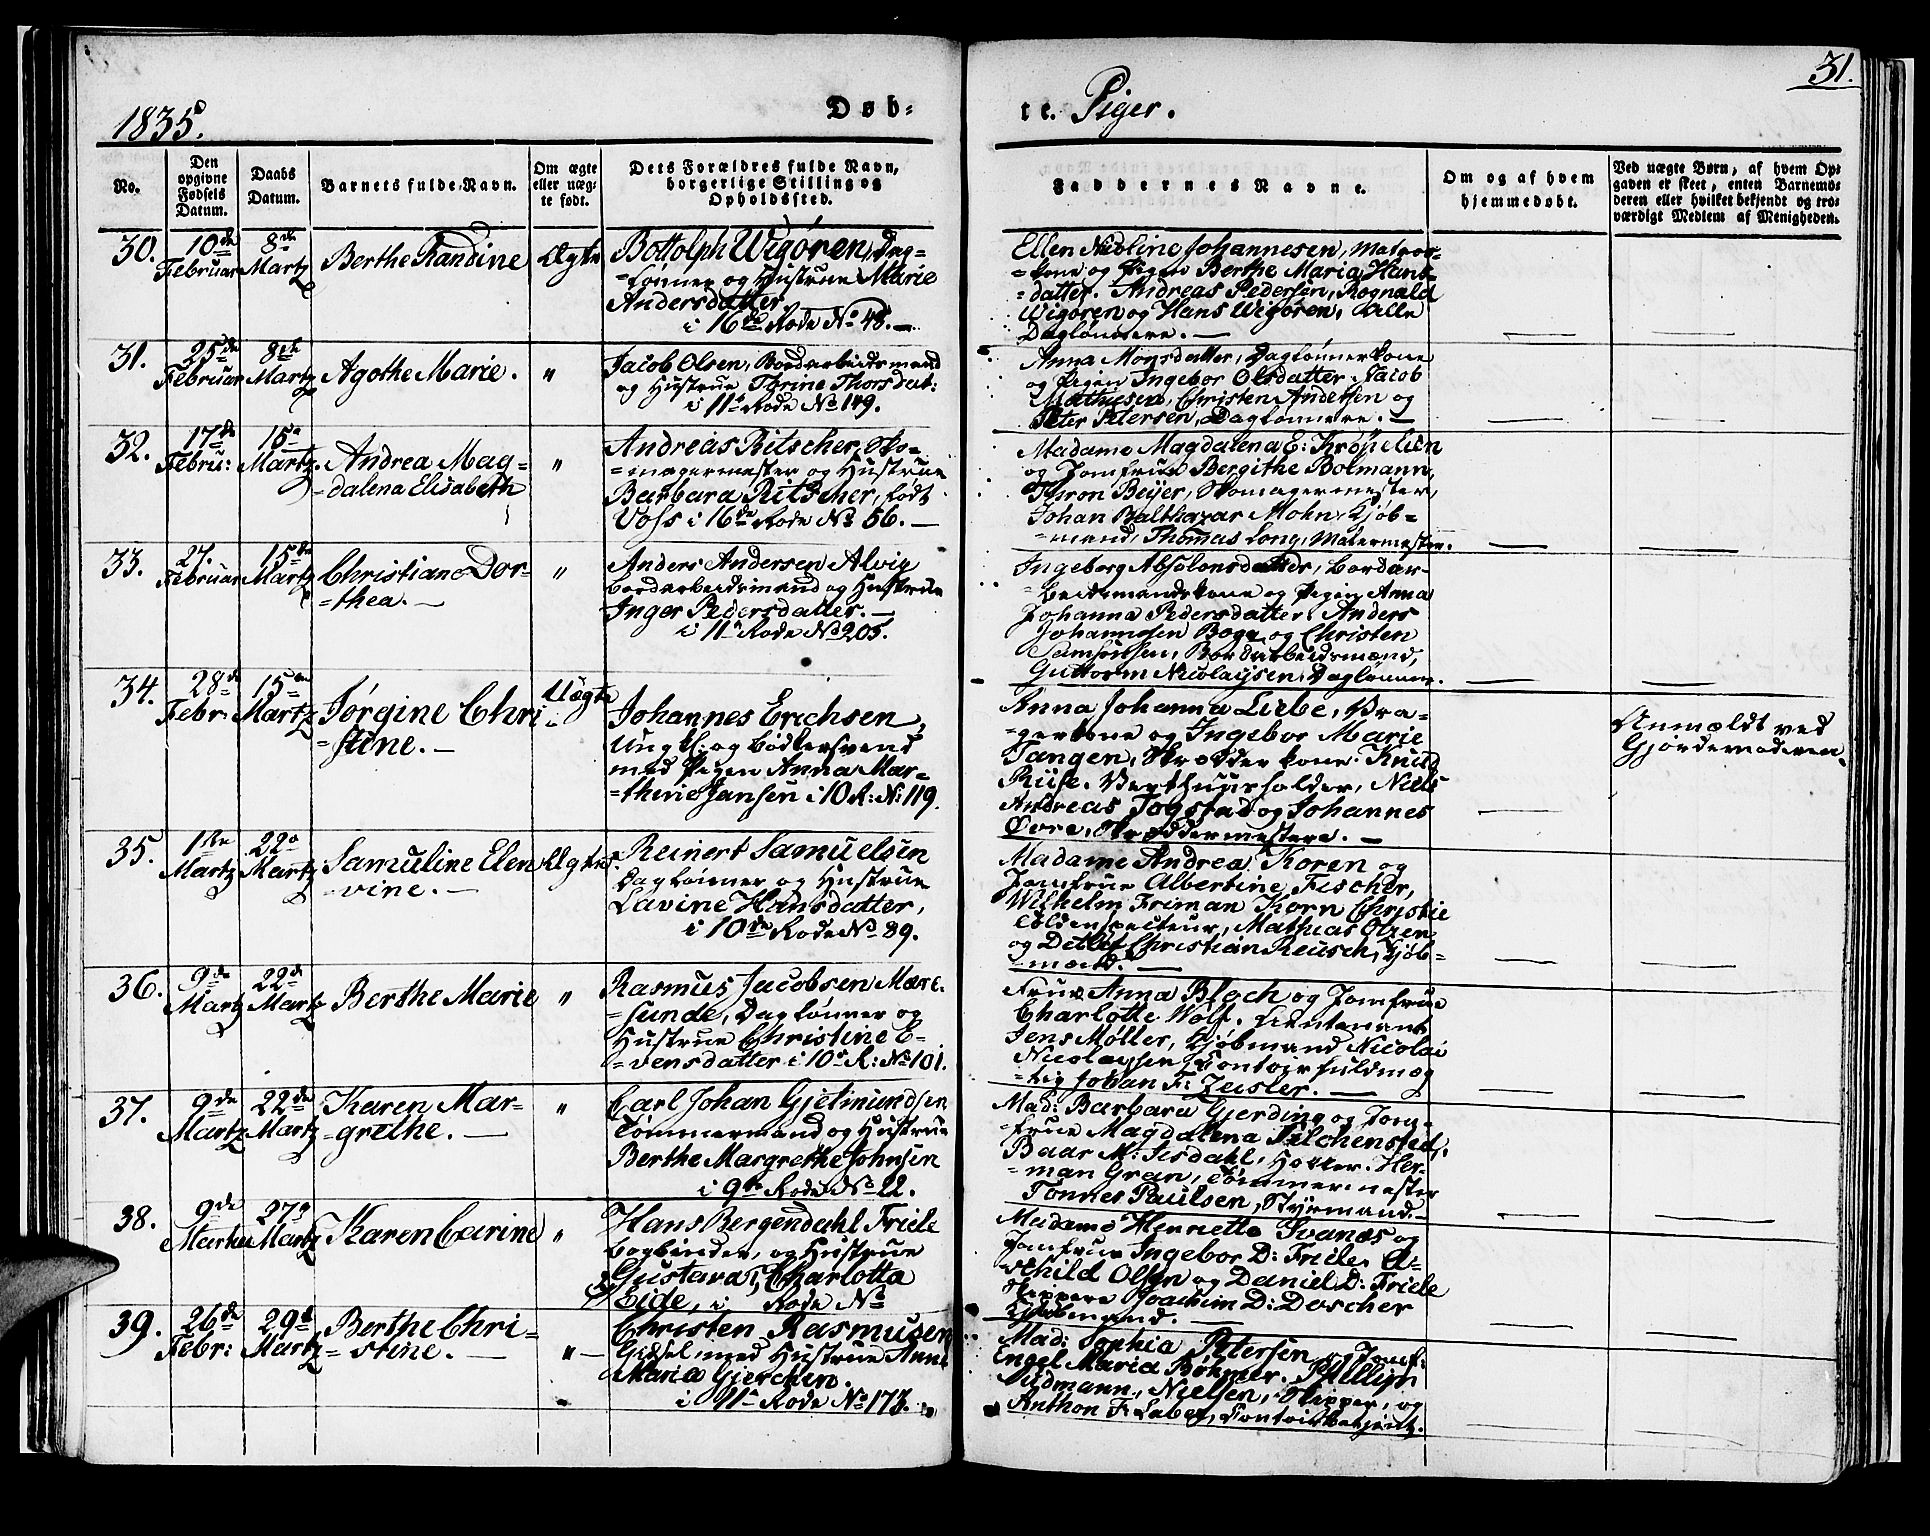 31.
1835.
Døb-
te. Piger.
No.
Den opgivne Fødsels Datum.
Daabs Datum.
Barnets fulde Navn.
Om ægte eller uægte født.
Dets Forældres fulde Navn, borgerlige Stilling og Opholdssted.
Faddernes Navne.
Om og af hvem hjemmedøbt.
Ved uægte Børn, af hvem Op-
gaven er skeet, enten Barnemo-
deren eller hvilket bekjendt og tro-
værdigt Medlem af Menigheden.
30.
10de Februar
8de Martz
Berthe Randine
Ægte
Bottolph Wigøren, Dag-
-lønner og Hustrue Marie
Andersdatter
i 16de Rode No 48. —
Ellen Nicoline Johannesen, Matros-
-kone og Pigen Berthe Maria Hans-
-datter. Andreas Pedersen, Rognald
Wigøren og Hans Wigøren, Alle
Daglønnere. —
31.
25de Februar
8de Martz
Agothe Marie.
"
Jacob Olsen, Bordarbeidsmand
og Hustrue Thrine Thorsdat:
i 11te Rode No 149.
Anna Monsdatter, Daglønnerkone
og Pigen Ingebor Olsdatter. Jacob
Mathiesen, Christen Andersen og
Peter Petersen, Daglønnere. —
32.
17de Febru:
15de Martz.
Andrea Mag-
-dalena Elisabeth
"
Andreas Ritscher, Sko-
-magermester og Hustrue
Barbara Ritscher, født
Voss i 16de Rode No 56. —
Madame Magdalena E: Krøpelien
og Jomfrue Bergithe Bolmann,
Thron Beijer, Skomagermester,
Johan Balthazar Mohn, Kjøb-
-mand, Thomas Long, Malermester.
33.
27. Februar
15de Martz
Christiane Dor-
-thea. —
"
Anders Andersen Alvig
Bordarbeidsmand og Hustrue
Inger Pedersdatter. —
i 11te Rode No 205.
Ingeborg Absolonsdatter, Bordar-
-beidsmandskone og Pigen Anna
Johanna Pedersdatter. Anders
Johannesen Boge og Christen
Samsonsen, Bordarbeidsmænd,
Guttorm Nicolaysen, Daglønner.
34.
28de Febr:
15de Martz
Jørgine Chri-
-stine. —
Uægte
Johannes Erichsen,
Ungk: og Bødkersvend
med Pigen Anna Mar-
-therie Jansen i 10 R: No 119.
Anna Johanna Liebe, Dra-
-gerkone og Ingebor Marie
Tangen, Skrædderkone. Knud
Riise, Verthuusholder, Niels
Andreas Togstad og Johannes
Øvre, Skræddermestere. —
Anmældt ved
Gjordemoderen.
35.
1ste Martz
22de Martz
Samuline Elen
-vine. —
Ægte
Reinert Samuelsen
Daglønner og Hustrue
Lavine Hansdatter,
i 10de Rode No 89.
Madame Andrea Koren og
Jomfrue Albertine Fischer,
Wilhelm Friman Korn Christie
Toldinspecteur, Mathias Olsen
og Detlef Christian Reusch, Kjøb-
-mænd. —
36.
9de Martz
22de Martz
Berthe Marie
"
Rasmus Jacobsen Møre-
-sunde, Daglønner og
Hustrue Christine E-
-vensdatter i 10de R: No 101.
Frue Anna Bloch og Jomfrue
Charlotte Wolf. Lieutenant
Jens Møller, Kjøbmand Nicolai
Nicolaysen, Contoirfuldmæg
-tig Johan F: Zeisler. —
37.
9de Martz
22de Martz
Karen Mar-
-grethe. —
"
Carl Johan Gjelmundsen
Tømmermand og Hustrue
Berthe Margrethe Johnsen
i 9de Rode No 22.
Mad: Barbara Gjerding og Jom-
-frue Magdalena Filchensted,
Baar M: Isdahl, Høker. Her-
-man Gran, Tømmermester
Tønnes Paulsen, Styrmand. —
38.
9de Martz
27de Martz
Karen Carine
"
Hans Bergendahl Friele
Bogbinder, og Hustrue
Gustava Charlotta
Eide, i Rode No
Madame Henriette Svanøs og
Jomfrue Ingebor D: Friele. A-
-schild Olsen og Daniel D: Friele
Skippere Joachim D: Doscher
Kjøbmand. —
39.
26de Febr:
29de Martz
Berthe Chri-
-stine. —
"
Christen Rasmusen
Gidsel, med Hustrue Anne
Maria Gjerthen.
i 11te Rode No 173.
Mad: Sophia Petersen og Jomf:
Engel Maria Bøhmer. Phillip
Widmann, Nielsen, Skipper, og
Anthon F: Laber, Contoirbetjent.